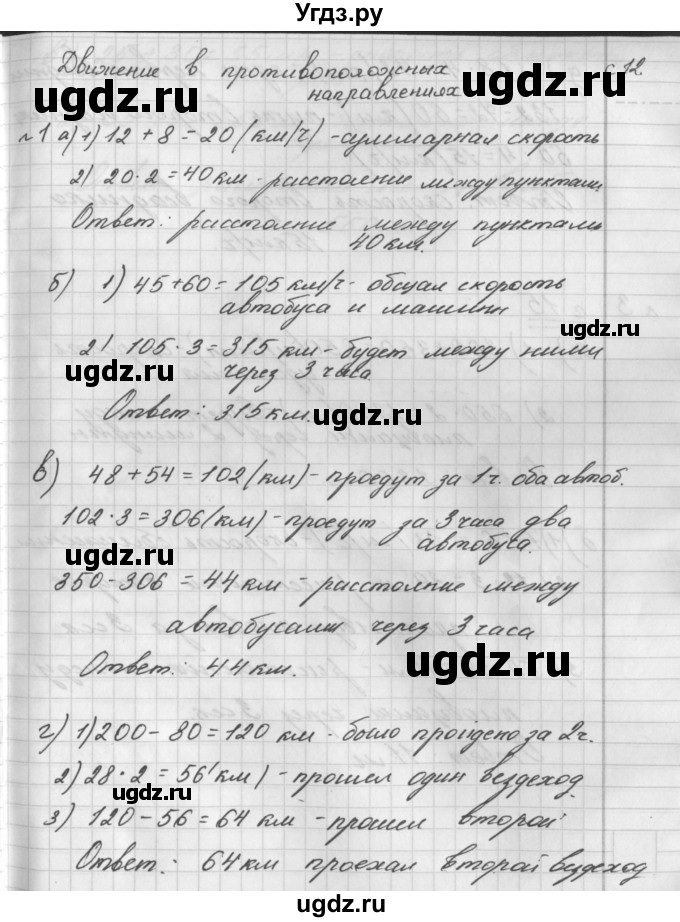 Угдз.ру
Движение в противоположных с 12
направлениях
№1 а) 1) 12 + 8 = 20 (км/ч) - суммарная скорость
2) 20 · 2 = 40 км - расстояние между пунктами
Ответ: расстояние между пунктами
40 км.
б) 1) 45 + 60 = 105 км/ч - общая скорость
автобуса и машины
2) 105 · 3 = 315 км - будет между ними
через 3 часа.
Ответ: 315 км.
в) 48 + 54 = 102 (км) - проедут за 1 ч. оба автоб.
102 · 3 = 306 (км) - проедут за 3 часа два
автобуса.
350 - 306 = 44 км - расстояние между
автобусами через 3 часа
Ответ: 44 км.
г) 1) 200 - 80 = 120 км - было пройдено за 2 ч.
2) 28 · 2 = 56 (км) - прошел один вездеход.
3) 120 - 56 = 64 км - прошел второй
Ответ: 64 км проехал второй вездеход
ugdz.ru
ugdz.ru
ugdz.ru
ugdz.ru
ugdz.ru
ugdz.ru
ugdz.ru
ugdz.ru
ugdz.ru
ugdz.ru
ugdz.ru
ugdz.ru
ugdz.ru